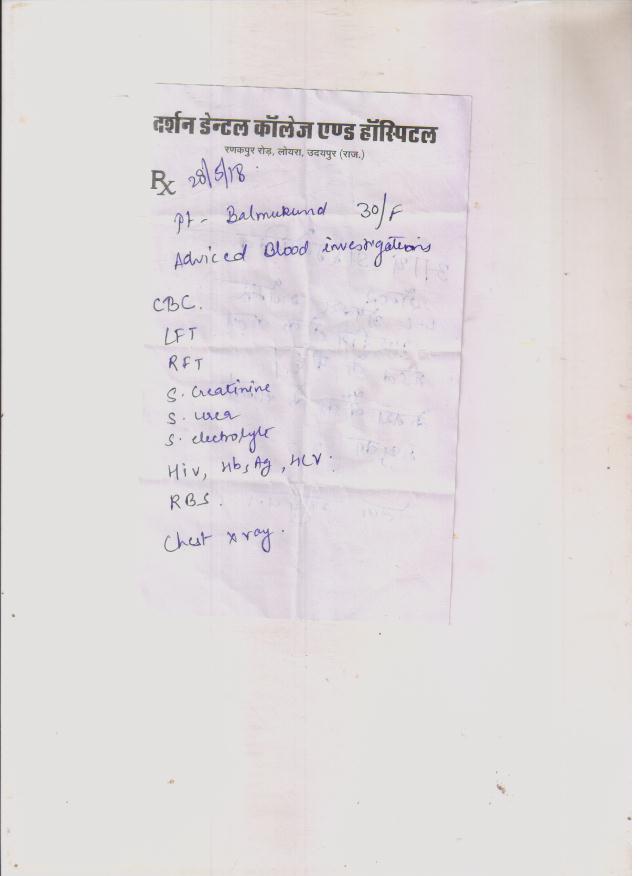 दर्शन डेन्टल कॉलेज एण्ड हॉस्पिटल
रणकपुर रोड़, लोयरा, उदयपुर (राज.)
Rx 28/5/18.
Pt - Balmukund 30/F
Adviced Blood investigations
CBC.
LFT
RFT
S. Creatinine
S. urea
S. electrolyte
Hiv, HbsAg, HCV.
RBS.
Chest xray.